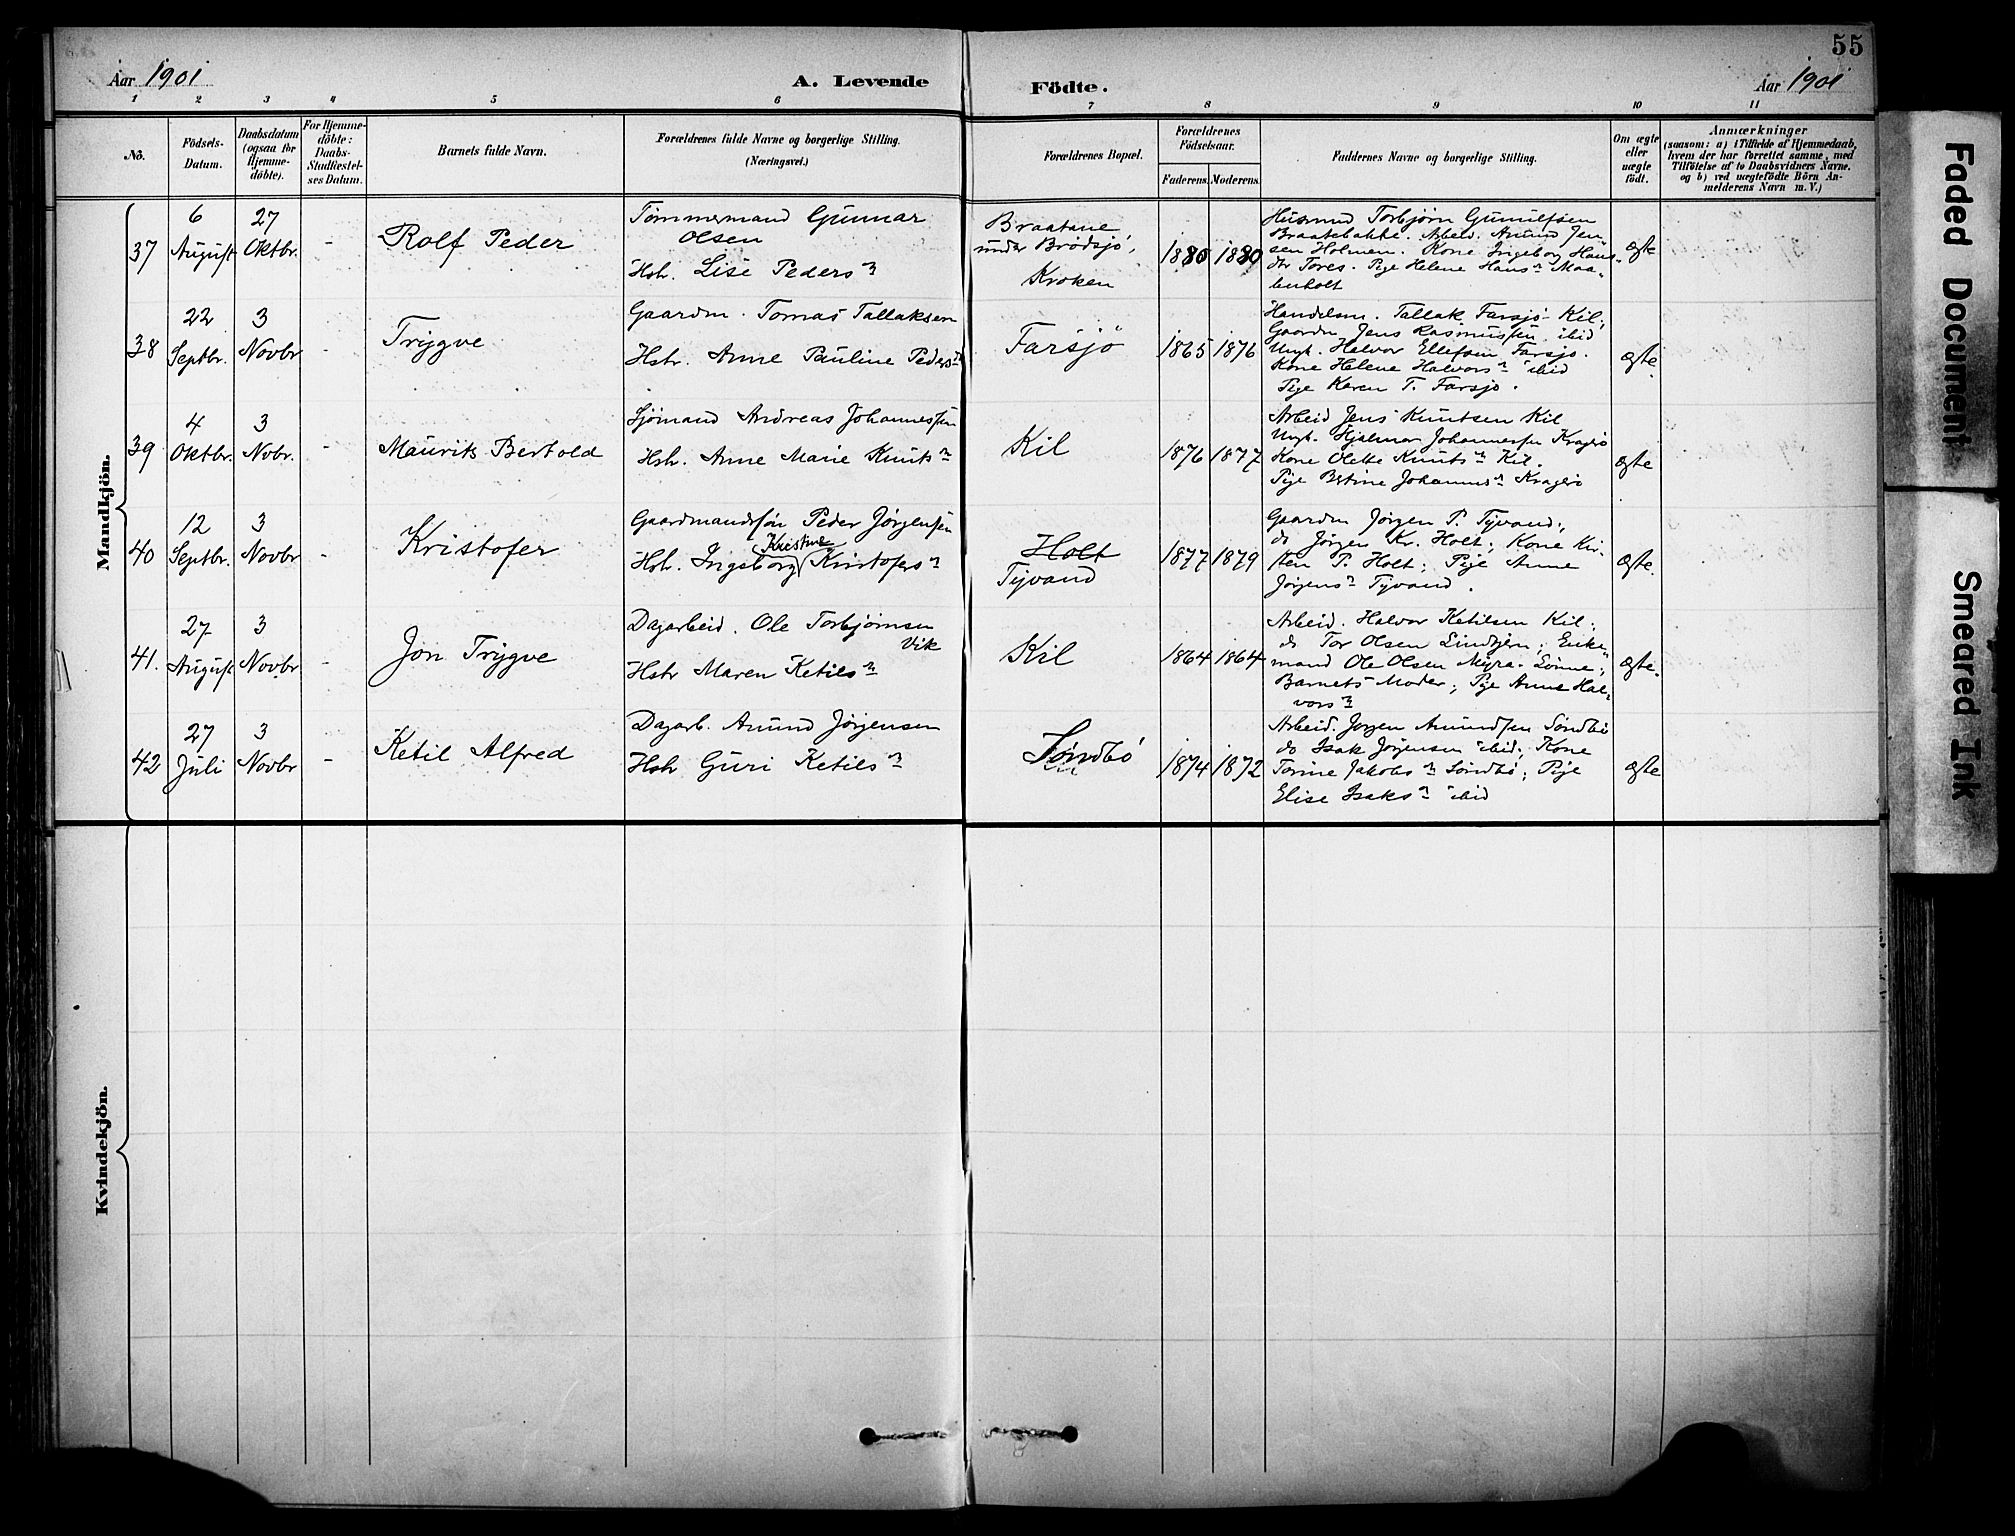 55
Aar 1901
A. Levende
Födte.
Aar 1901
1 2 3 4 5 6 7 8 9 10 11
No.
Födsels-
Datum.
Daabsdatum
(ogsaa for
Hjemme-
döbte).
For Hjemme-
döbte:
Daabs-
Stadfæstel-
ses Datum.
Barnets fulde Navn.
Forældrenes fulde Navne og borgerlige Stilling.
(Næringsvei.)
Forældrenes Bopæl.
Forældrenes
Födselsaar.
Faderens. Moderens.
Faddernes Navne og borgerlige Stilling.
Om ægte
eller
uægte
født.
Anmærkninger
(saasom: a) i Tilfælde af Hjemmedaab,
hvem der har forrettet samme, med
Tilföielse af to Daabsvidners Navne.
og b) ved uægtefödte Börn An-
melderens Navn m. V.)
Mandkjön.
37
6
August
27
Oktbr.
-
Rolf Peder
Tømmermand Gunnar
Olsen
Hstr. Lise Pedersn
Braatane
under Brødsjø,
Kroken
1880 1880
Husmd Torbjørn Gunulfsen
Braatebakke. Arbeid. Amund Jen-
sen Holmen. Kone Ingeborg Hans-
dtr Tores. Pige Helene Hansn Maa-
lenholt
Ægte
38
22
Septbr.
3
Novbr
-
Trygve
Gaardm. Tomas Tallaksen
Hstr. Anne Pauline Pedersn
Farsjö
1865 1876
Handelsm. Tallak Farsjø Kil;
Gaardm Jens Rasmussen ibid
Ungk. Halvor Ellefsen Farsjø.
Kone Helene Halvorsn ibid
Pige Karen T. Farsjø.
Ægte
39
4
Oktbr.
3
Nobr.
-
Maurits Bertold
Sjømand Andreas Johannessen
Hstr. Anne Marie Knutsn
Kil
1876 1877
Arbeid Jens Knutsen Kil
Ungk. Hjalmar Johannessen Kragerø
Kone Olette Knutsn Kil.
Pige Betine Johannesn Kragerø
Ægte
40
12
Septbr.
3
Novbr
-
Kristofer
Gaardmandssøn Peder Jørgensen
Kristine
Hstr. Ingeborg Kristofersn
Holt
Tyvand
1877 1879
Gaardm Jørgen P. Tyvand;
do Jørgen Kr. Holt; Kone Kir-
sten P. Holt; Pige Anne
Jørgensn Tyvand.
Ægte.
41.
27
August
3
Novbr
-
Jon Trygve
Dagarbeid. Ole Torbjørnsen
Vik
Hstr Maren Ketilsn
Kil
1864 1864
Arbeid. Halvor Ketilsen Kil;
do Tor Olsen Lindtjern; Enke-
mand Ole Olsen Myra Lønne;
Barnets Moder; Pige Anne Hal-
vorsn
Ægte.
42
27
Juli
3
Novbr
-
Ketil Alfred
Dagarb. Amund Jørgensen
Hstr Guri Ketilsn
Søndbø
1874 1872
Arbeid. Jørgen Amundsen Søndbø
do Isak Jørgensen ibid; Kone
Torine Jakobsn Søndbø; Pige
Elise Isaksn ibid
Ægte
Kvindekjön.
Faded Document
Smeared Ink